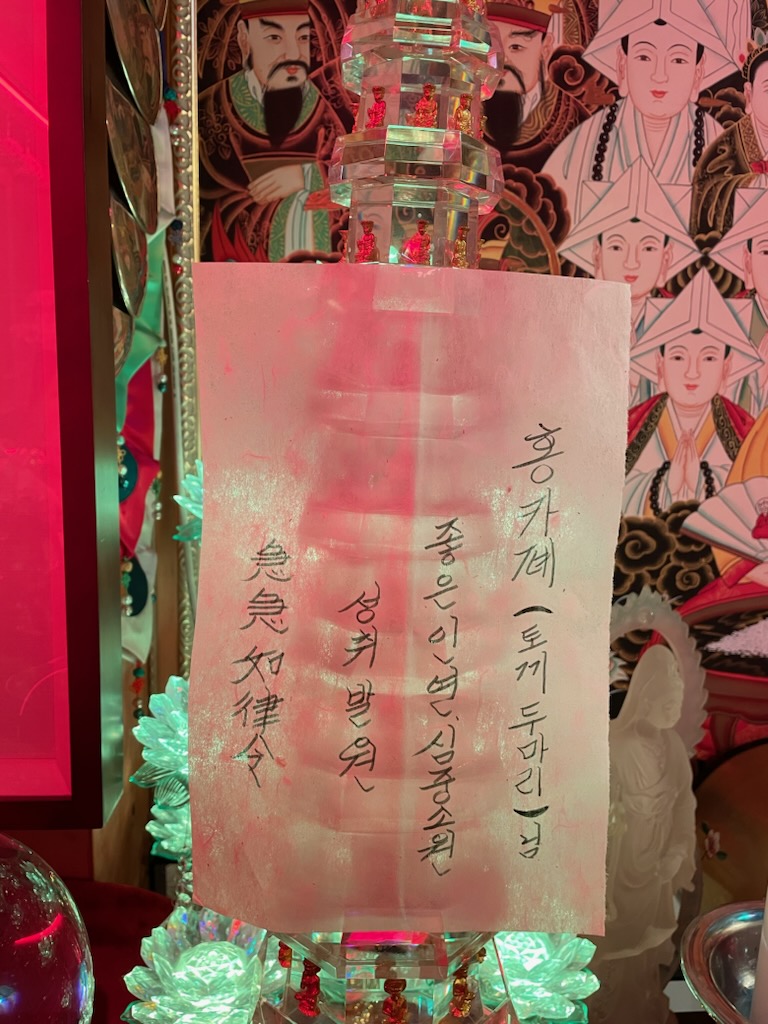 홍가례 (토끼두마리)님
좋은인연, 심중소원
성취발원
急急如律令